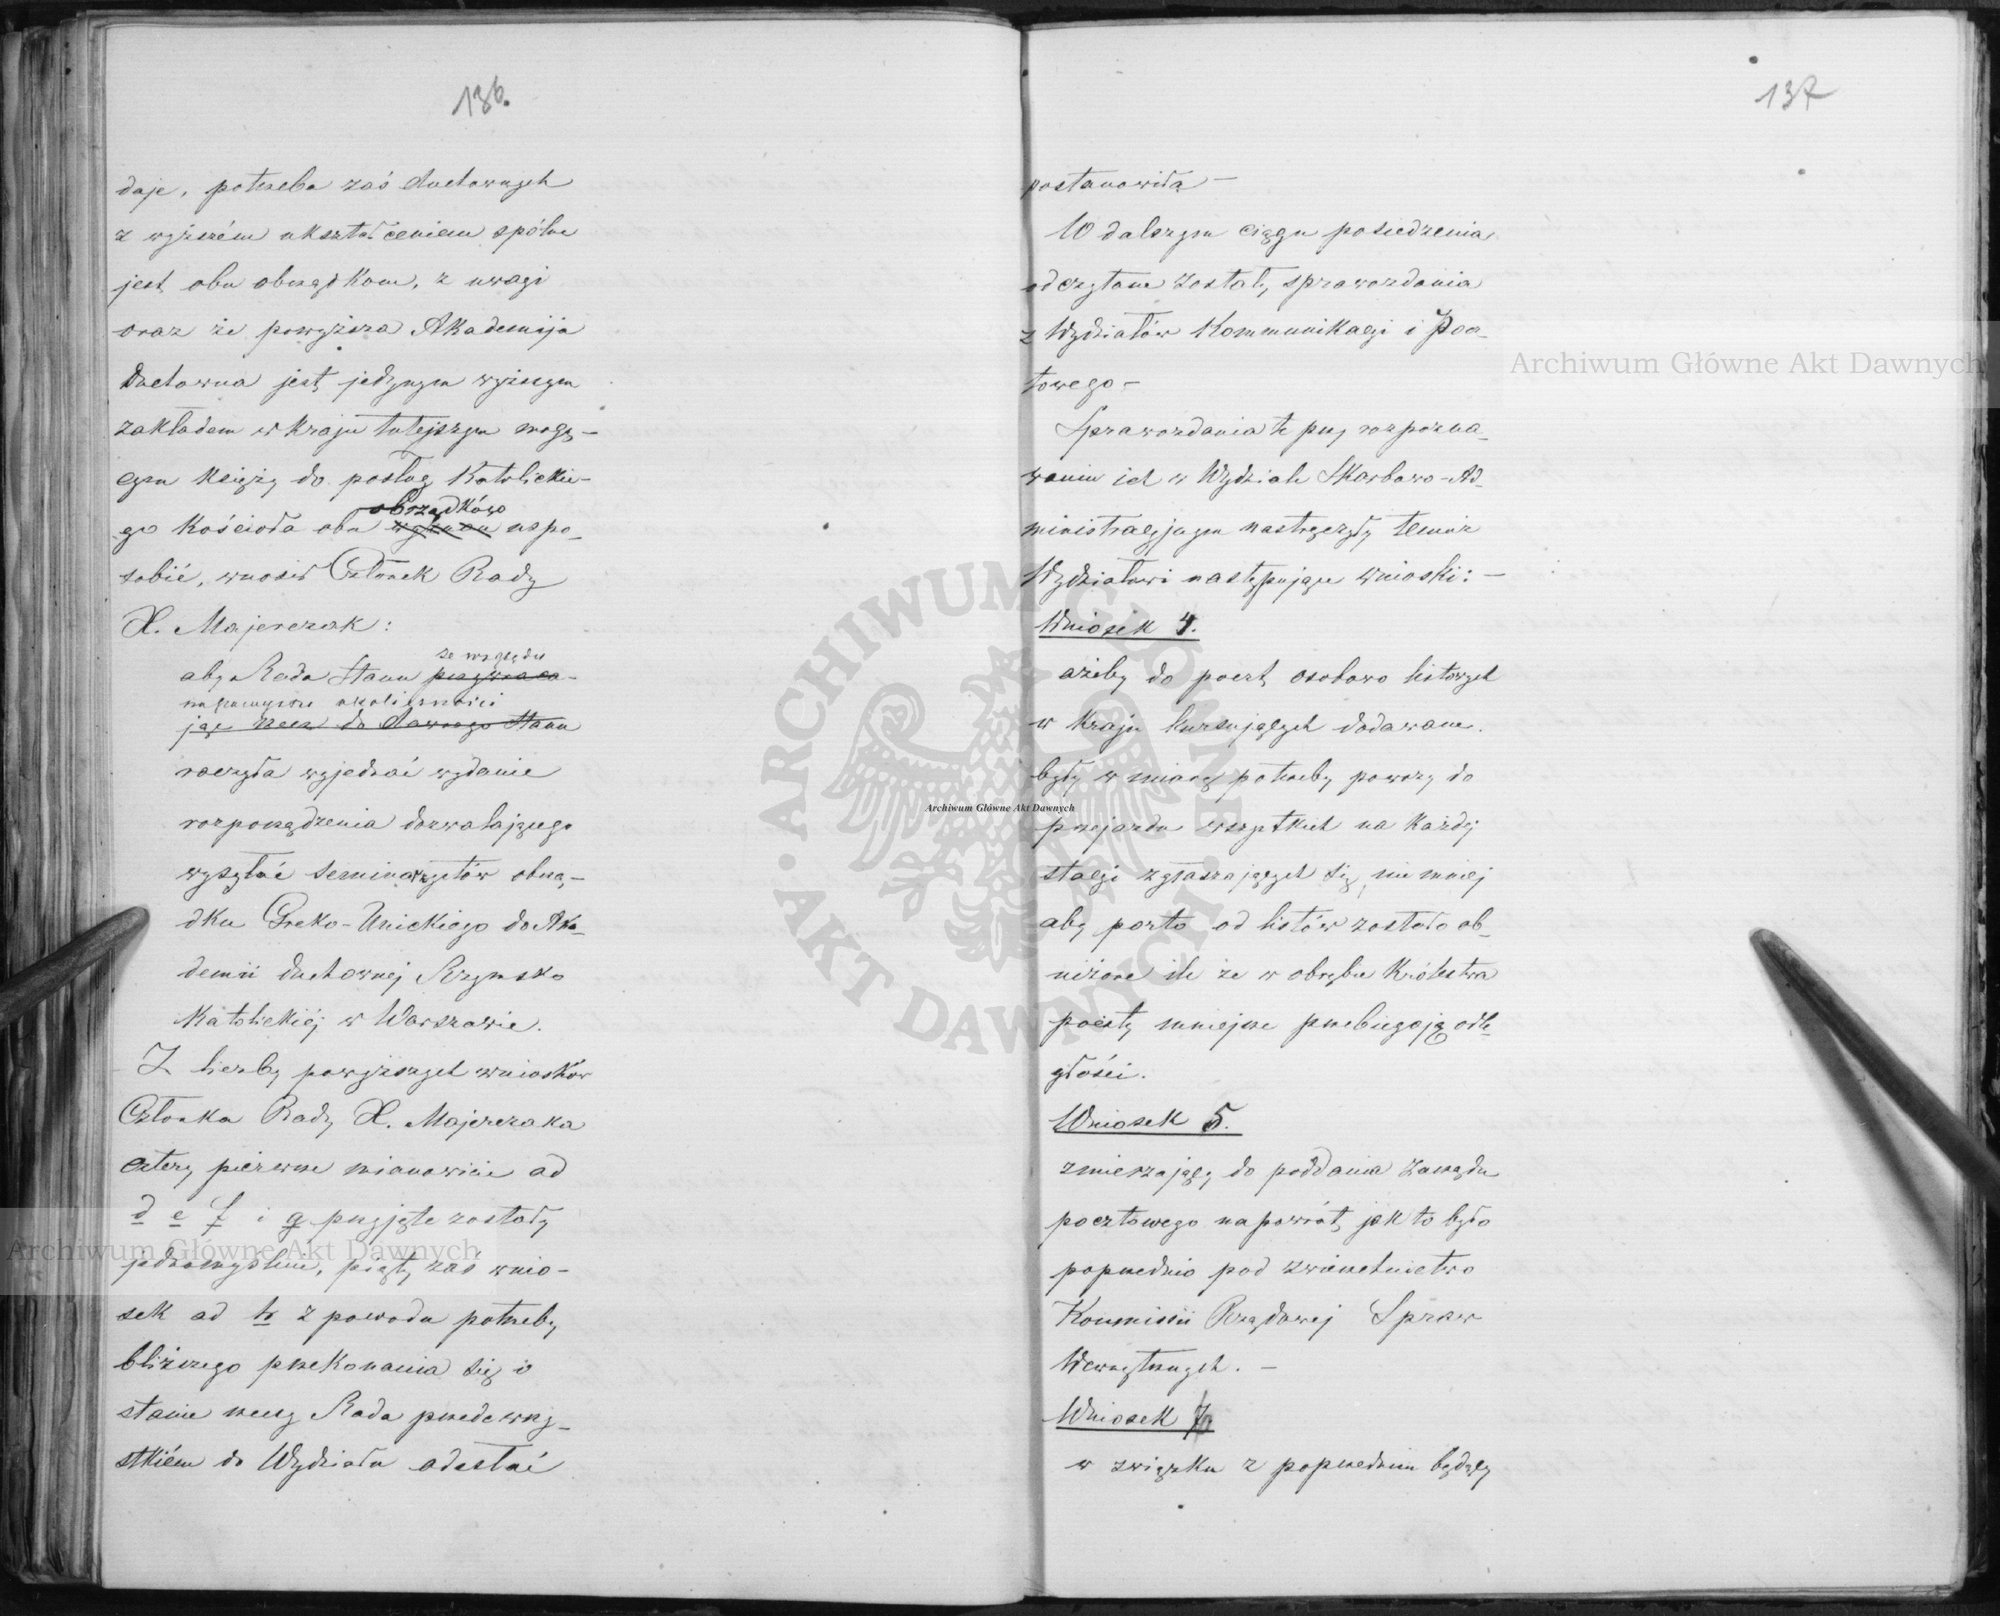 136.
daje, potrzeba zaś duchownych
z wyższém ukształceniem spólne
jest obu obrządkom, z uwagi
oraz że powyższa Akademija
Duchowna jest jedynym wyższym
zakładem w kraju tutejszym mogą-
cym księży do posług Katolickie-
obrządków
go Kościoła obu uspo-
sobić, wnosił Członek Rady
X. Majerczak:
ze względu
aby Rada Stanu przywraca-
na powyższe okoliczności
jąc rzecz do dawnego stanu
raczyła wyjednać wydanie
rozporządzenia dozwalającego
wysyłać seminarzystów obrzą-
dku Greko-Unickiego do Aka-
demii duchownéj Rzymsko
Katolickiéj w Warszawie.
Z liczby powyższych wniosków
Członka Rady X. Majerczaka
cztery pierwsze mianowicie ad
d e f i g przyjęte zostały
jednomyślnie, piąty zaś wnio-
sek ad h z powodu potrzeby
bliższego przekonania się o
stanie rzeczy Rada przedewszy-
stkiém do Wydziału odesłać
137
postanowiła –
W dalszym ciągu posiedzenia
odczytane zostały sprawozdania
z Wydziałów Kommunikacyi i Pocz-
towego –
Sprawozdania te przy rozpozna-
waniu ich w Wydziale Skarbowo-Ad-
ministracyjnym nastręczyły temuż
Wydziałowi następujące wnioski: –
Wniosek 4.
ażeby do poczt osobowo listowych
w kraju kursujących dodawane
były w miarę potrzeby powozy do
przejazdu wszystkich na każdéj
stacyi zgłaszających się, nie mniéj
aby porto od listów zostało ob-
niżone ile że w obrębie Królestwa
poczty mniejsze przebiegają odle-
głości.
Wniosek 5.
zmierzający do poddania zarządu
pocztowego napowrót, jak to było
poprzednio pod zwierzchnictwo
Kommissii Rządowej Spraw
Wewnętrznych. –
Wniosek
w związku z poprzednim będący
Archiwum Główne Akt Dawnych
Archiwum Główne Akt Dawnych
Archiwum Główne Akt Dawnych
ARCHIWUM GŁÓWNE AKT DAWNYCH